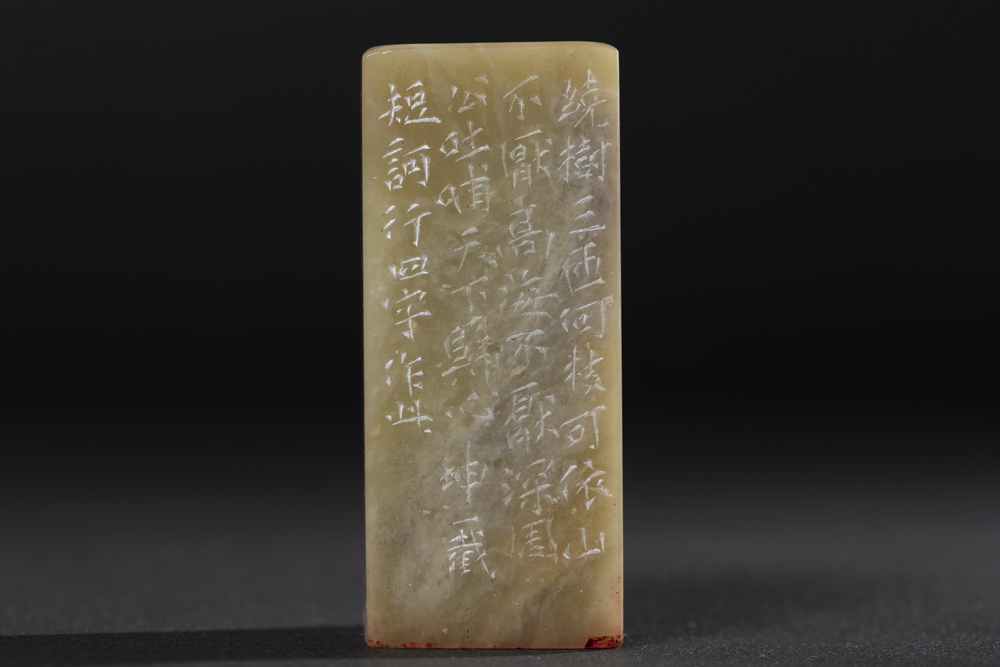 繞樹三匝何枝可依山
不厭高海不厭深周
公吐哺天下歸心坤截
短訶行四字作此